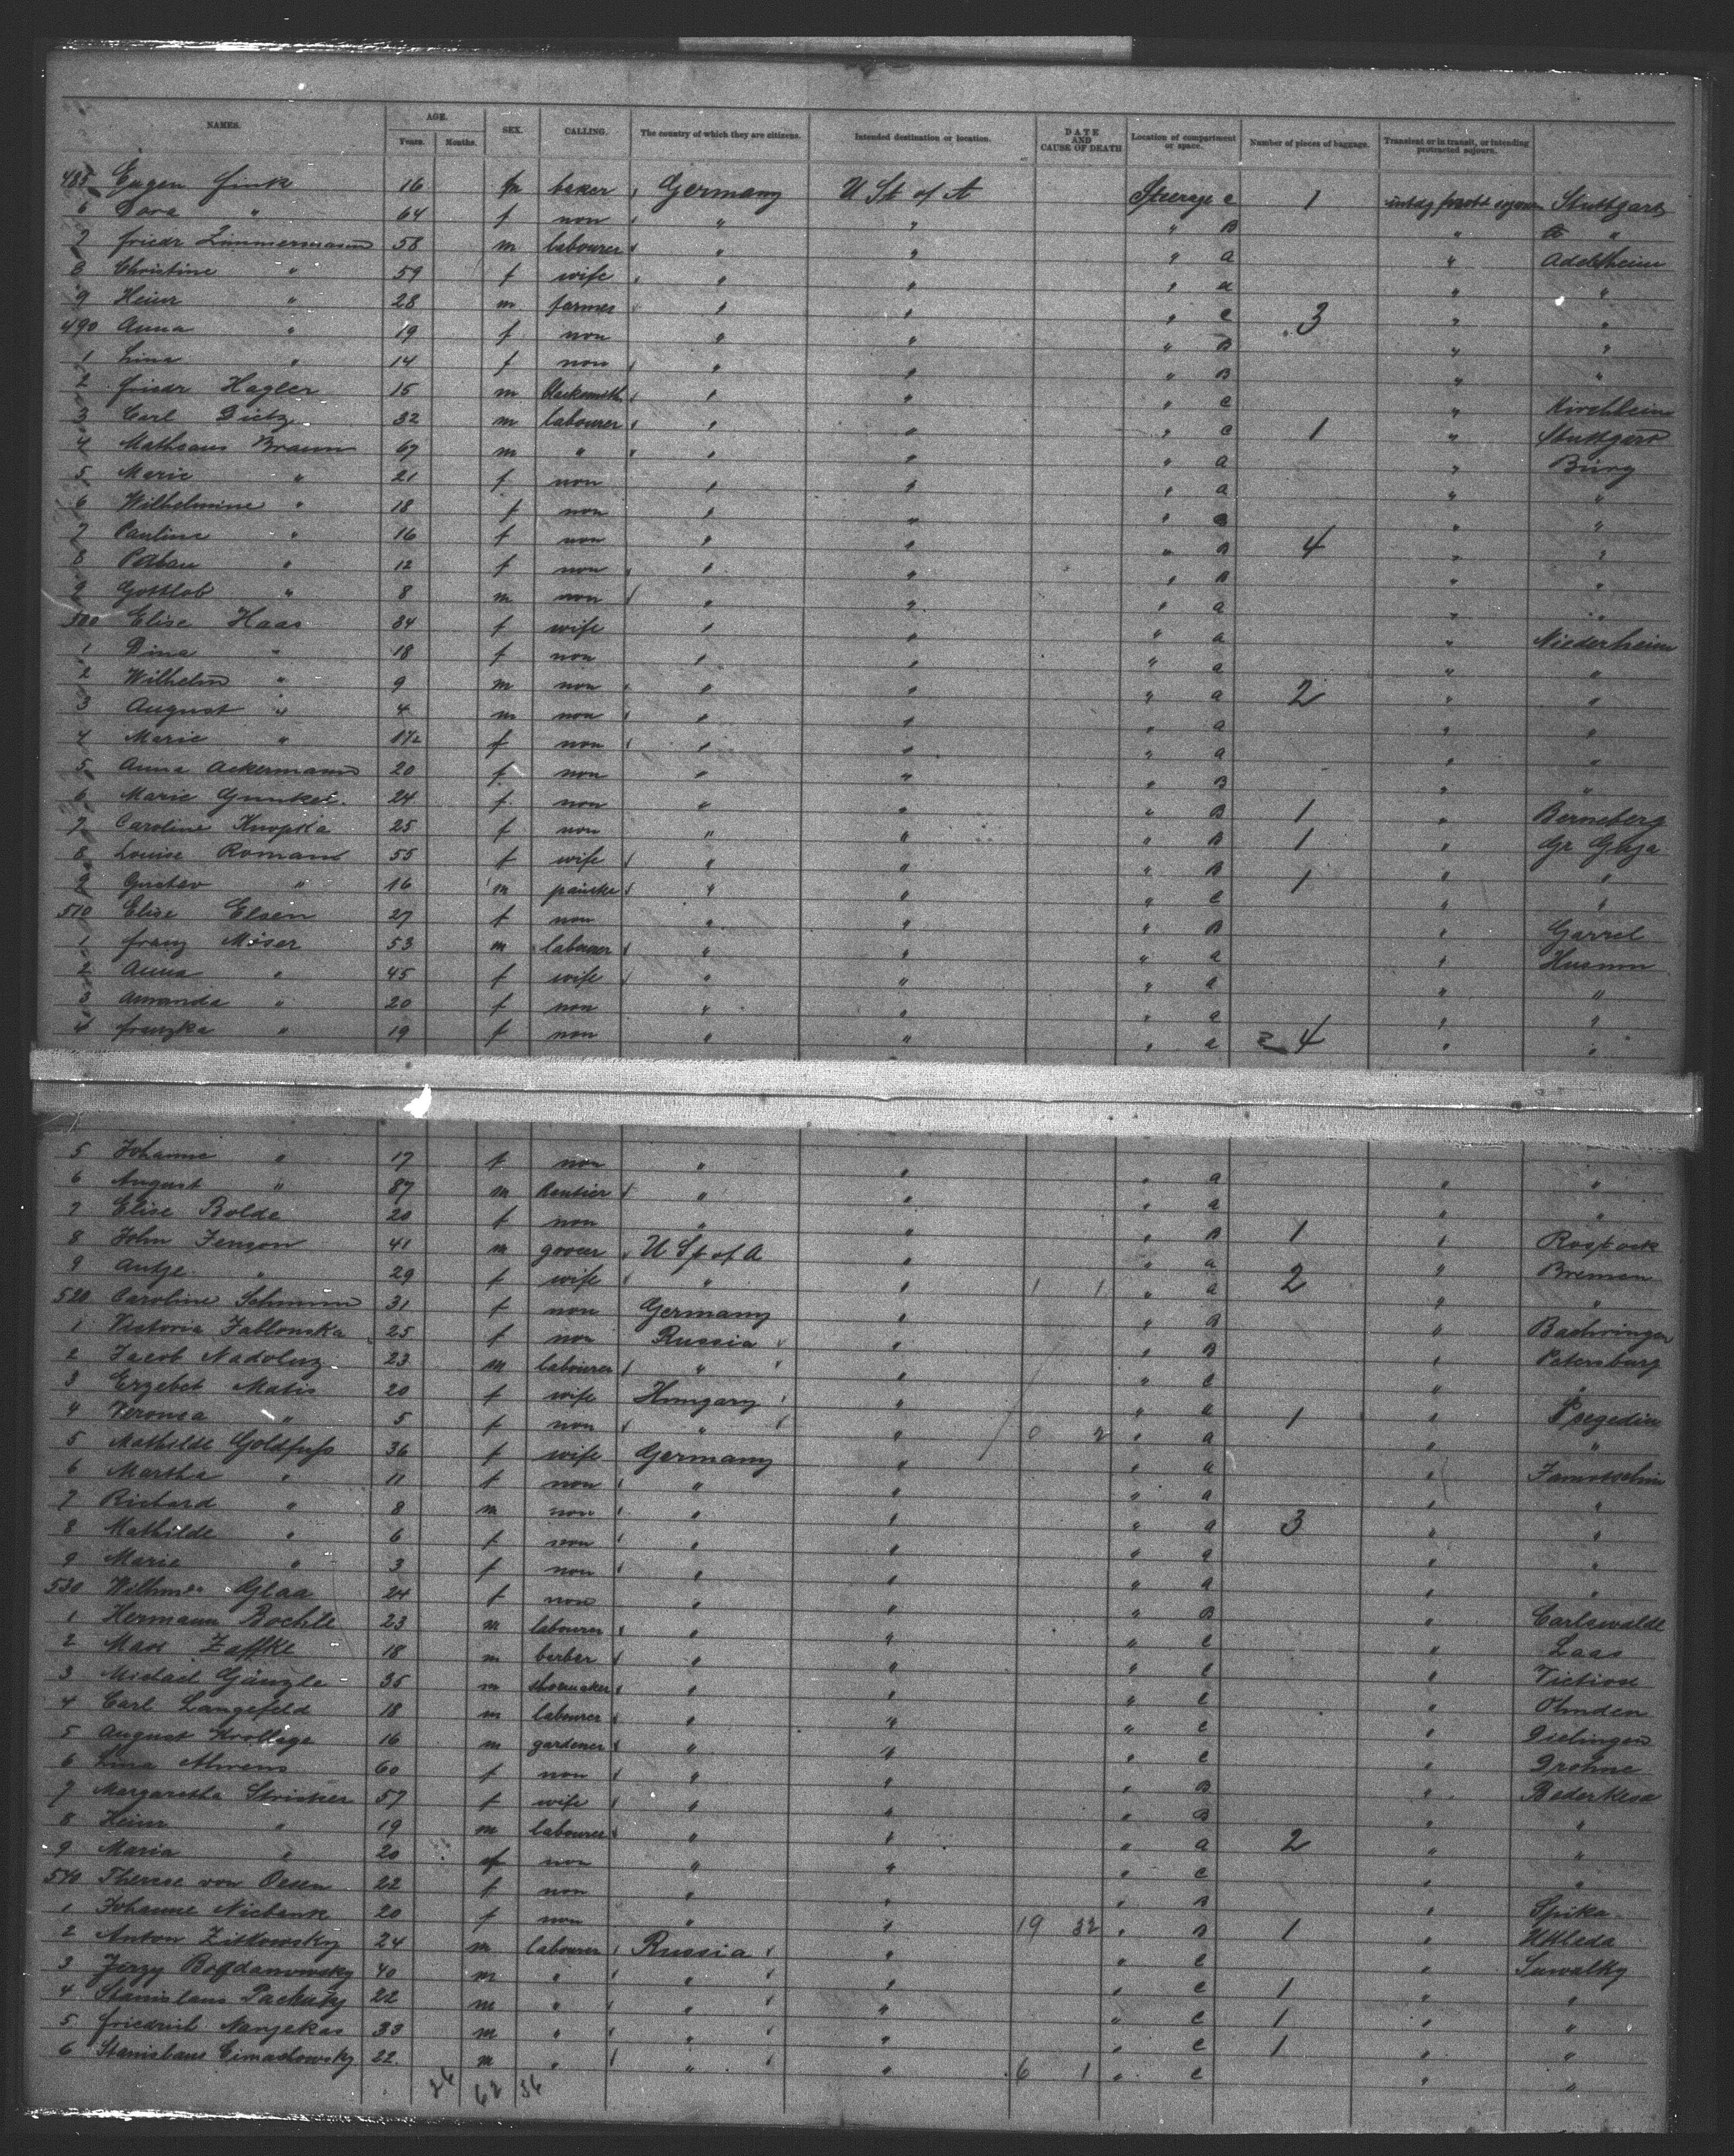 NAMES. AGE. Years. Months. SEX. CALLING. The country of which they are citizens. Intended destination or location. DATE AND CAUSE OF DEATH Location of compartment or space. Number of pieces of baggage. Transient or in transit, or intending protracted sojourn.
485 Eugen Fink 16 m baker Germany U St of A Steerage c 1 Stuttgart
6 " 64 f non " " " B " "
7 Friedr Zimmermann 58 m labourer " " " a " Adelsheim
8 Christine " 59 f wife " " " a " "
9 Heinr " 28 m farmer " " " c 3 " "
490 Anna " 19 f non " " " B " "
1 Lina " 14 f non " " " B " "
2 Friedr Hagler 15 m blacksmith " " " c " Kirchheim
3 Carl Dietz 32 m labourer " " " c 1 " Stuttgart
4 Matheaus Braun 67 m " " " " a " Bürg
5 Marie " 21 f non " " " a " "
6 Wilhelmine " 18 f non " " " " "
7 Pauline " 16 f non " " " B 4 " "
8 " 12 f non " " " B " "
9 Gottlob " 8 m non " " " a " "
500 Elise Haas 34 f wife " " " a " Niederheim
1 Dina " 18 f non " " " a " "
2 Wilhelm " 9 m non " " " a 2 " "
3 August " 4 m non " " " a " "
4 Marie " f non " " " a " "
5 Anna Ackermann 20 f non " " " B " "
6 Marie Gunkel 24 f non " " " B 1 " Berneberg
7 Caroline Knopka 25 f non " " " B 1 " Gr Gaja
8 Louise Romans 55 f wife " " " B 1 " "
9 Gustav " 16 m " " " c " "
510 Elise Elsen 27 f non " " " B " Garrel
1 Franz Moser 53 m labourer " " " a " Husum
2 Anna " 45 f wife " " " a " "
3 Amanda " 20 f non " " " a " "
4 Franzka " 19 f non " " " a 4 " "
5 Johanne " 17 f non " " " a " "
6 August " 87 m Rentier " " " a " "
7 Elise Bolde 20 f non " " " B 1 " Rostock
8 John Jenson 41 m grocer U St of A " " a 2 " Bremen
9 Antje " 29 f wife " " 1 1 " a " "
520 Caroline Schumm 31 f non Germany " " B " Bachringen
1 Victoria Jablonska 25 f non Russia " " B " Petersburg
2 Jacob Nadoluz 23 m labourer " " " c " "
3 Erzebet Matis 20 f wife Hungary " " a 1 " Szegedin
4 Verona " 5 f non " " 0 2 " a " "
5 Mathilde Goldfuss 36 f wife Germany " " a "
6 Martha " 11 f non " " " a " "
7 Richard " 8 m non " " " a 3 " "
8 Mathilde " 6 f non " " " a " "
9 Marie " 3 f non " " " a " "
530 Wilhme Glaa 24 f non " " " B " Carlswalde
1 Hermann Bochle 23 m labourer " " " c " Laas
2 Max Zaffke 18 m berber " " " c "
3 Michael Gänzle 35 m shoemaker " " " c " Ohmden
4 Carl Langefeld 18 m labourer " " " c " Dielingen
5 August Krollage 16 m gardener " " " c " Drohne
6 Lina Ahrens 60 f non " " " B " Bederkesa
7 Margaretha Stricker 57 f wife " " " B " "
8 Heinr " 19 m labourer " " " a 2 " "
9 Maria " 20 f non " " " c " "
540 Therese von Oesen 22 f non " " " B " Spika
1 Johanne Niebank 20 f non " " 19 32 " B 1 " Uthleda
2 Anton Zitkowsky 24 m labourer Russia " " c " Suwalky
3 Jerzy Bogdanowsky 40 m " " " " c 1 " "
4 Stanislaus 22 m " " " " c 1 " "
5 Friedrich Narjekas 33 m " " " " c 1 " "
6 Stanislaus Cimachowsky 22 m " " " 6 1 " c " "
26 62 36